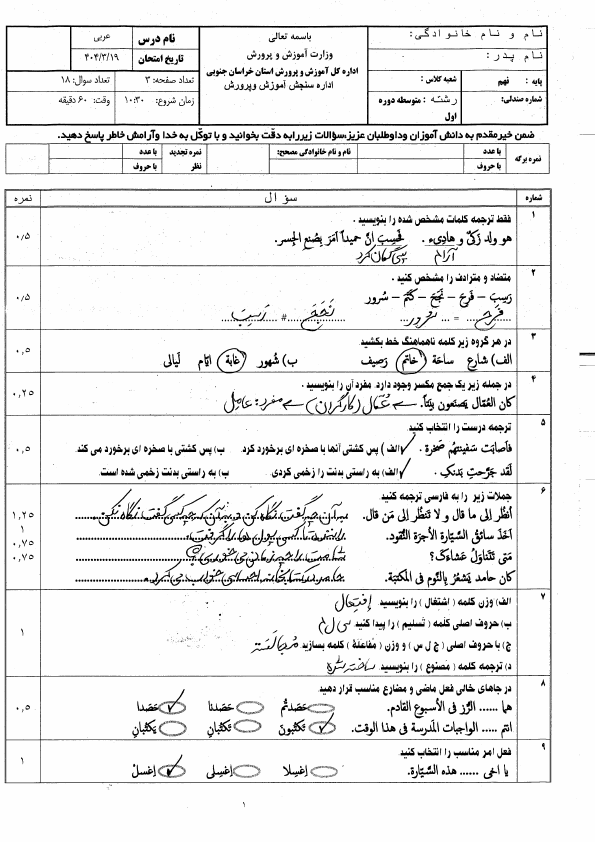 نام و نام خانوادگی:
نام پدر:
پایه : نهم
شعبه کلاس :
شماره صندلی:
رشته : متوسطه دوره اول
باسمه تعالی
وزارت آموزش و پرورش
اداره کل آموزش و پرورش استان خراسان جنوبی
اداره سنجش آموزش وپرورش
نام درس
عربی
تاریخ امتحان
۴۰۴/۳/۱۹
تعداد صفحه: ۳
تعداد سوال: ۱۸
زمان شروع: ۱۰:۳۰
وقت: ۶۰ دقیقه
ضمن خیرمقدم به دانش آموزان وداوطلبان عزیز،سؤالات زیررابه دقّت بخوانید و با توکّل به خدا وآرامش خاطر پاسخ دهید.
نمره برگه
با عدد
با حروف
نام و نام خانوادگی مصحح:
نمره تجدید نظر
با عدد
با حروف
شماره
سؤال
نمره
۱
فقط ترجمه کلمات مشخص شده را بنویسید .
هو ولد زَکیّ و هادِیء . فَحَسِبَ انَّ حمیداً اَمَرَ بِصُنعِ الجِسر.
۰/۵
آرام پس گمان کرد
۲
متضاد و مترادف را مشخص کنید .
رَسِبَ – فَرِحَ – نَجَحَ – کَتَمَ – سُرور
۰/۵
فرح = سرور نَجَحَ # رَسِبَ
۳
در هر گروه زیر کلمه ناهماهنگ خط بکشید.
الف) شارع ساحَة خاتَم رَصیف ب) شُهور غابَة ایّام لَیالی
۰,۵
۴
در جمله زیر یک جمع مکسر وجود دارد. مفرد آن را بنویسید .
کانَ العُمّال یَصنَعونَ بیتاً. عُمّال (کارگران) مفرد: عامِل
۰,۲۵
۵
ترجمه درست را انتخاب کنید.
فَاَصابَت سَفینَتَهُم صَخرَة . الف) پس کشتی آنها با صخره ای برخورد کرد. ب) پس کشتی با صخره ای برخورد می کند.
۰,۵
لَقَد جَرَّحتِ بَدَنکِ. الف) به راستی بدنت را زخمی کردی ب) به راستی بدنت زخمی شده است.
۶
جملات زیر را به فارسی ترجمه کنید
اُنظُر اِلی ما قالَ و لا تَنظُر اِلی مَن قالَ. به آن چه گفت نگاه کن و به آن که چه کسی گفت نگاه نکن
۱,۲۵
اَخَذَ سائِقُ السَّیّارَة الاُجرَة النُّقود.
۱
مَتی تَتَناوَلُ عَشاءَکَ؟
۰,۷۵
کان حامد یَشعُرُ بِالنَّوم فی المَکتَبَة.
۰,۷۵
۷
الف) وزن کلمه ( اشتغال ) را بنویسید اِفتِعال
ب) حروف اصلی کلمه ( تَسلیم ) را پیدا کنید س ل م
ج) با حروف اصلی ( ج ل س ) و وزن ( مُفاعَلَة ) کلمه بسازید مُجالَسَة
د) ترجمه کلمه ( مَصنوع ) را بنویسید ساخته شده
۱
۸
در جاهای خالی فعل ماضی و مضارع مناسب قرار دهید.
هما ...... الرُّز فی الاُسبوعِ القادم. حَصَدتُم حَصَدنا حَصَدا
انتم ..... الواجبات المَدرسة فی هذا الوَقت. تَکتُبونَ تَکتُبانِ یَکتُبانِ
۰,۵
۹
فعل امر مناسب را انتخاب کنید
یا اخی ...... هذه السَّیّارَة. اِغسِلا اِغسِلی اِغسِلْ
۱
۱